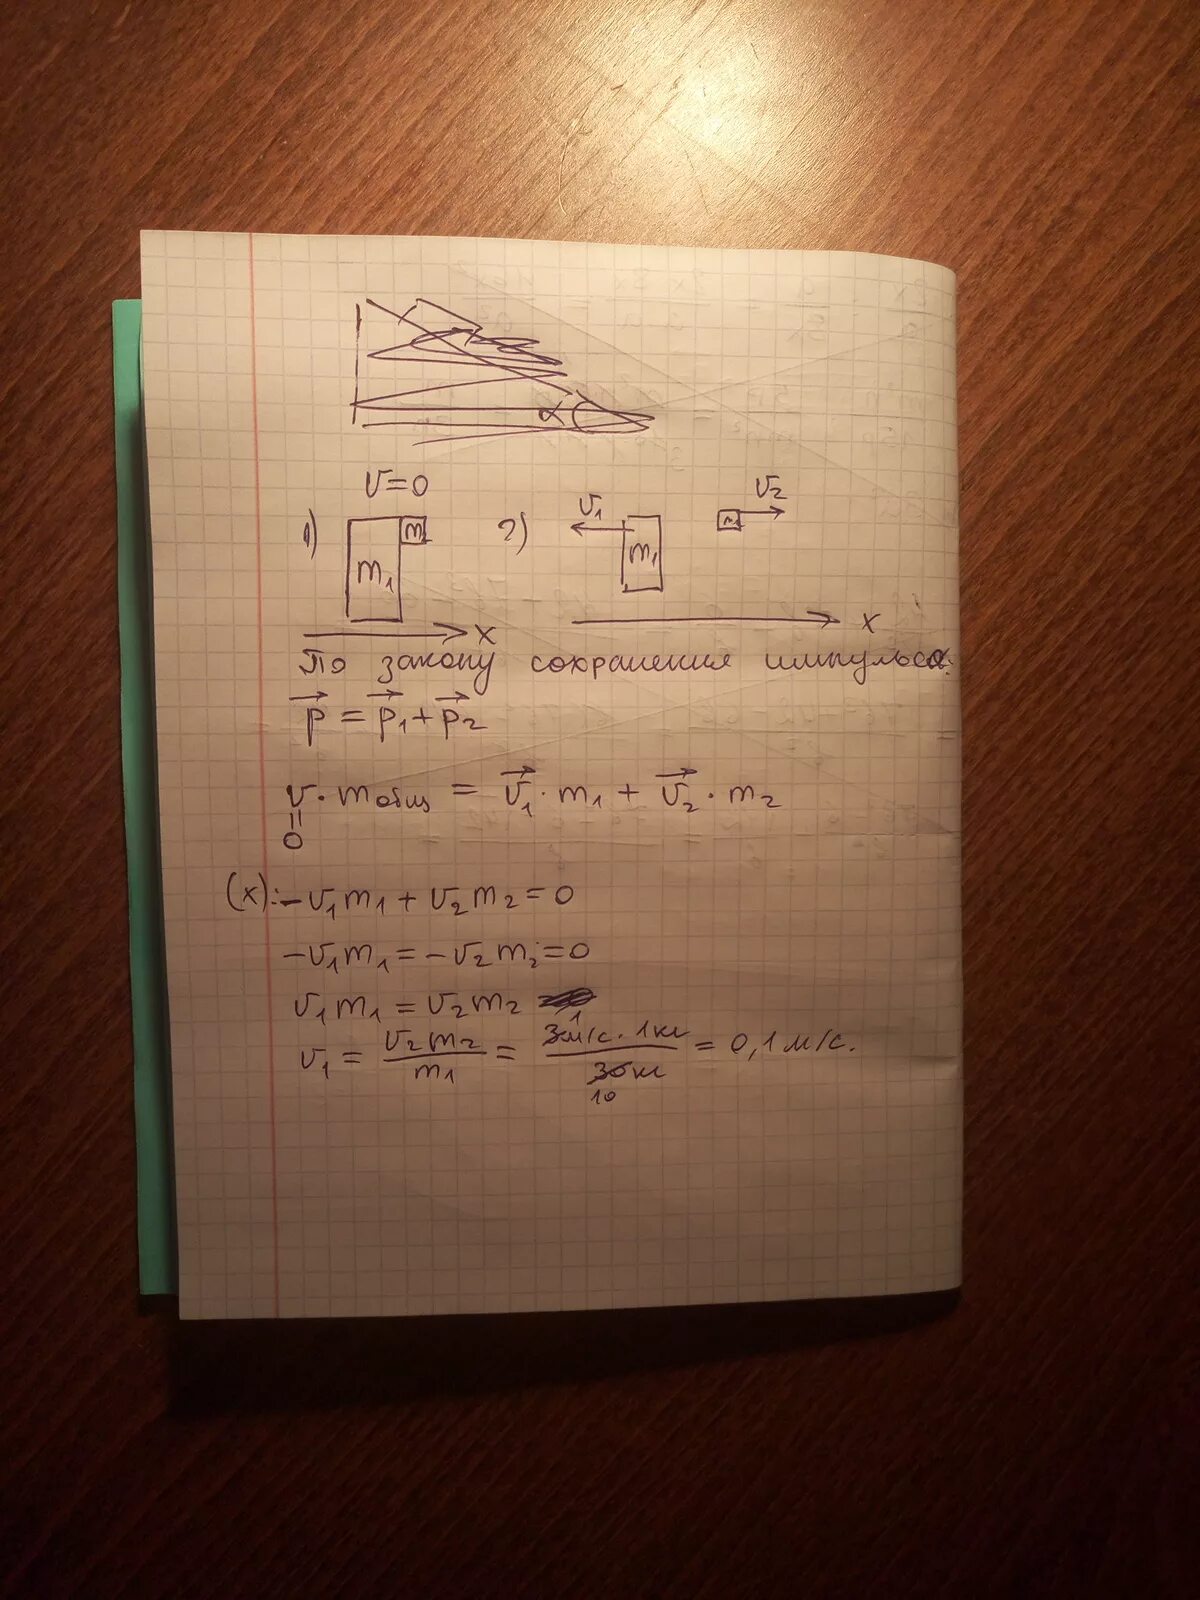 α
v=0
1) m₁ m₂ 2) v₁ m₁ m₂ v₂
x x
По закону сохранения импульса:
p⃗ = p⃗₁ + p⃗₂
v · mобщ = v⃗₁ · m₁ + v⃗₂ · m₂
=
0
(x): -v₁m₁ + v₂m₂ = 0
-v₁m₁ = -v₂m₂ = 0
v₁m₁ = v₂m₂
v₁ = v₂m₂/m₁ = 3м/с · 1кг/30кг = 0,1м/с.
1
10